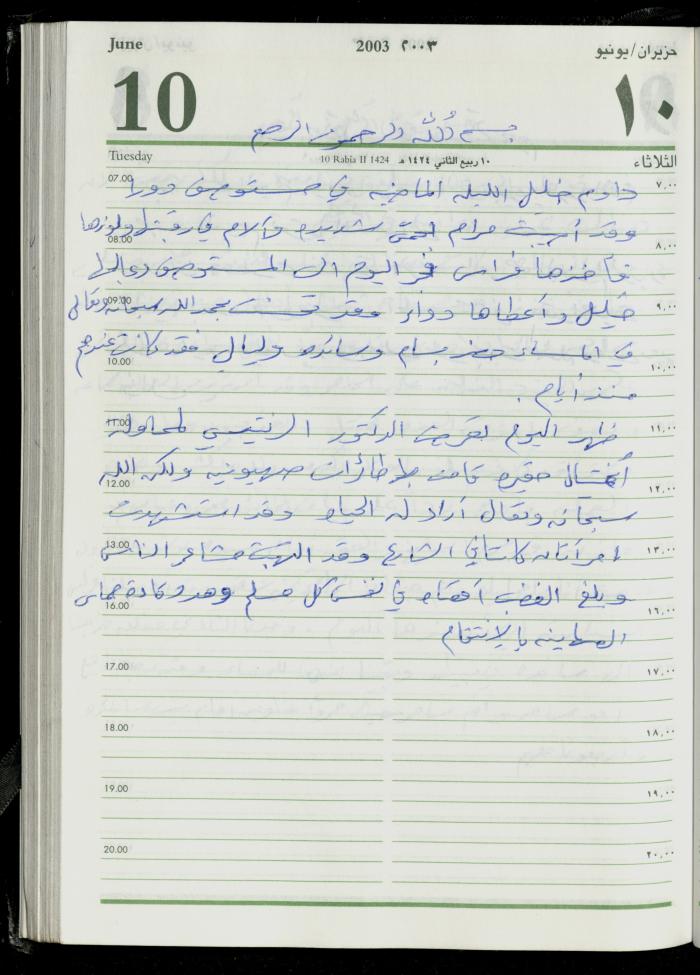 June 2003 ٢٠٠٣ حزيران/يونيو
10 ١٠
بسم الله الرحمن الرحيم
Tuesday 10 Rabia II 1424 ١٠ ربيع الثاني ١٤٢٤ هـ الثلاثاء
07.00 داوم خليل الليلة الماضية في مستوصف دورا ٧,٠٠
وقد أصيبت مرام بحمى شديدة وآلام في رقبتها ولوزها
08.00 ٨,٠٠
فأخذها فراس فجر اليوم الى المستوصف وعالجها
09.00 خليل وأعطاها دواء وقد تحسنت بحمد الله سبحانه وتعالى ٩,٠٠
في المساء حضر بسام وسائده وليالي فقد كانت عندهم
10.00 ١٠,٠٠
منذ أيام .
11.00 ظهر اليوم تعرض الدكتور الرنتيسي لمحاولة ١١,٠٠
اغتيال حقيرة قامت بها طائرات صهيونية ولكن الله
12.00 ١٢,٠٠
سبحانه وتعالى أراد له الحياة وقد استشهدت
13.00 امرأتان كانتا في الشارع وقد التهبت مشاعر الناس ١٣,٠٠
وبلغ الغضب أقصاه في نفس كل مسلم وهدد قادة حماس
16.00 ١٦,٠٠
الصهاينة بالإنتقام
17.00 ١٧,٠٠
18.00 ١٨,٠٠
19.00 ١٩,٠٠
20.00 ٢٠,٠٠